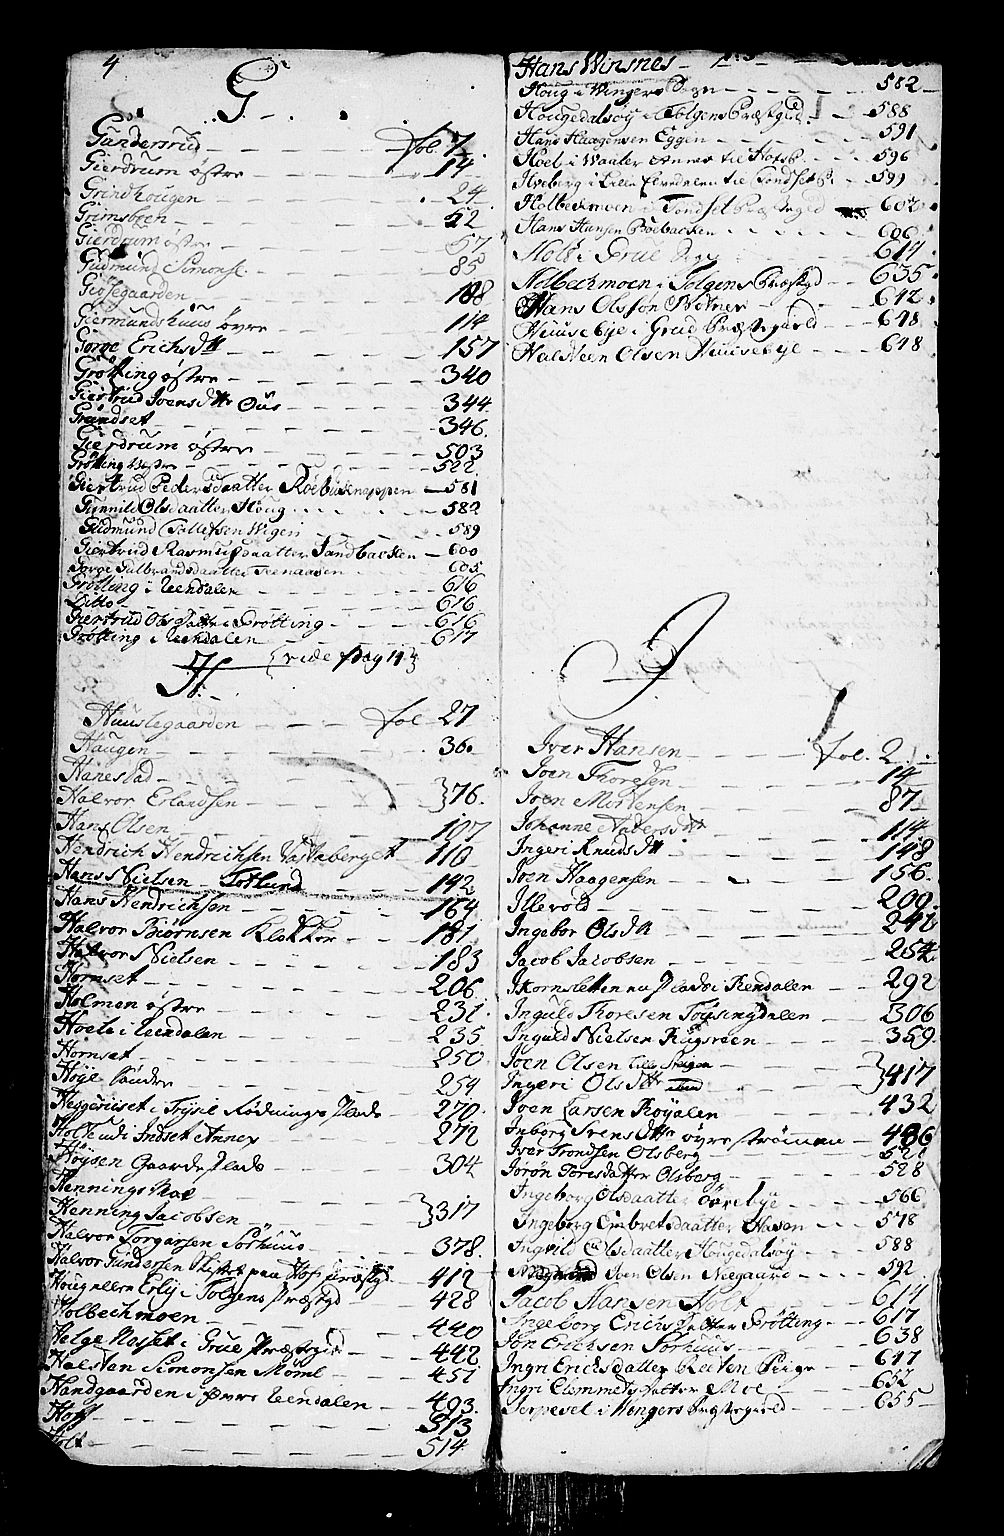 4
G.
Gundersrud fol. 7.
Gierdrum østre 14.
Grindhougen 24.
Grimsboen 52
Gierdrum østre 57
Gudmund Simons. 85
Giösegaarden 108
Giermundshuus øvre 114
Gorge Erichs dttr 157
Grötting østre 340
Giertrud Joens dttr Ous 344.
Grundset 346.
Gierdrum østre 503
Grötting Vestre 522
Giertrud Pedersdaatter Roebuknappen 581
Gunnild Olsdaatter Houg 582
Gudmund Tollefsen Wigen 589
Giertrud Rasmusdaatter Sandbacken 600
Gorge Gulbrandsdaatter Teenaasen 605
Grötting i Reendalen 616
Ditto 616
Giertrud Ols datter Grötting 616
Grötting i Reendalen 617
vide pag 114
H.
Huuslegaarden fol 27
Haugen 36.
Hanestad
Halvor Erlandsen } 76.
Hans Olsen 107
Hendrich Hendrichsen 110
Hans Nielsen Totlund 142
Hans Hendrichsen 164
Halvor Biörnsen Klokker 181
Halvor Nielsen 183
Hornset 206.
Holmen østre 231
Hoele i Reendalen 235.
Hornset 250
Höye söndre 254
Heggeriiset i Trysil Rödnings Plads 270.
Holte udi Indset Annex 272
Höysen Gaards Plads 304.
Hennings Moe
Henning Jacobsen } 317
Halvor Torgarsen Sörhuus 378.
Halvor Gundersen Skistet paa Hofs præstgd. 412
Houg ellers Erlij i Tolgens Præstgd 428
Holbechmoen 440
Helge Nosset i Grue Præstegield 442
Halsten Simonsen Moml 451
Handgaarden i øvre Reendalen 493.
Hoff 513
Holt 514
Hans Winsnes
Houg i Wingers Sogn 582
Hougedalsøy i Tolgens Præstgield 588
Hans Haagensen Eggen 591
Hoel i Waaler Annex til Hofs P. 596
Hveberg i Lille Elvedalen til Tonset P. 599
Holbechmoen i Tonset Præstegield 602
Hans Hansen Böebacken 606
Holt i Grue Sogn 614
Holbechmoen i Tolgens Præstgd 635
Hans Olssøn Wotner 642.
Huusebye i Grue Præstegield 648.
Halsteen Olsen Huusebye 648
I
Iver Hansen fol. 2.
Joen Thoresen 14
Joen Mortensen 87
Johanne Anders dttr 114.
Ingeri Knuds dttr 148
Joen Haagensen 156.
Illevold 209.
Ingebor Ols dttr 242
Jacob Jacobsen 254.
Jkornsletten en Plads i Rendalen 292
Inguld Thoresen Töysingdalen 306
Inguld Nielsen Rugsveen 359
Joen Olsen Lille Strigen
Ingeri Ols Dttr ibid } 417
Joen Larsen Röydlen 432
Inborg Svens dttr øvre strömmen 486
Iver Trondsen Olsberg 521
Jörön Toresdatter Olsberg 528
Ingeborg Olsdaatter Övrebye 566
Ingeborg Embretsdaatter Aasen 578
Ingvild Olsdaatter Hougedalsøy 588
Joen Olsen Neegaard 592
Jacob Hansen Holt 614
Ingeborg Erichs datter Grötting 617
Jon Erichsen Sörhuus 638
Ingri Erichsdatter Reiten 647
Ingri Clemmets datter Moe 652
Jerpeset i Wingers Præstegield 655